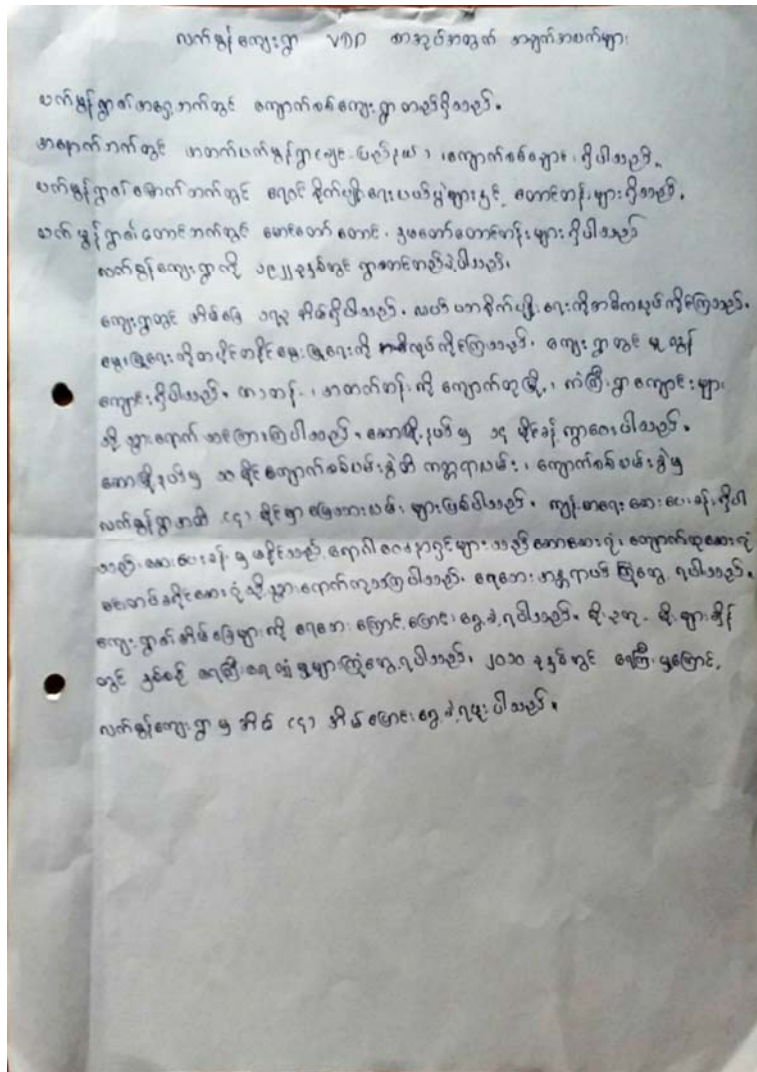 လက်ခွန်ကျေးရွာ VDP စာအုပ်အတွက် အချက်အလက်များ
လက်ခွန်ရွာ၏အရှေ့ဘက်တွင် ကျောက်စစ်ကျေးရွာ တည်ရှိသည်။
အနောက်ဘက်တွင် အထက်လက်ခွန်ရွာ ၊ကျောက်စစ်ချောင်း ရှိပါသည်။
လက်ခွန်ရွာ၏မြောက်ဘက်တွင် ရေဝင်စိုက်ပျိုးရေးလယ်မြေများနှင့် တောင်တန်းများရှိသည်။
လက်ခွန်ရွာ၏တောင်ဘက်တွင် မောင်တော်တောင်၊ နှမတော်တောင်တန်းများရှိပါသည်
လက်ခွန်ကျေးရွာကို ၁၉၂၂ ခုနှစ်တွင် ရွာစတင်တည်ခဲ့ပါသည်။
ကျေးရွာတွင် အိမ်ခြေ ၁၇၃ အိမ်ရှိပါသည်။ လယ်ယာစိုက်ပျိုးရေးကိုအဓိကလုပ်ကိုင်ကြသည်။
မွေးမြူရေးကိုတပိုင်တနိုင်မွေးမြူရေးကို လုပ်ကိုင်ကြသည်။ ကျေးရွာတွင် မူလွန်
ကျောင်းရှိပါသည်။ အလယ်တန်း၊ အထက်တန်းကို ကျောက်ထုမြို့၊ ကံကြီးရွာကျောင်းများ
သို့သွားရောက် သင်ကြားကြပါသည်။ ဆောမြို့နယ်မှ ၁၄ မိုင်ခန့် ကွာဝေးပါသည်။
ဆောမြို့နယ်မှ ၁၀ မိုင်ကျောက်စစ်လမ်းခွဲထိ ကတ္တရာလမ်း၊ ကျောက်စစ်လမ်းခွဲမှ
လက်ခွန်ရွာအထိ (၄) မိုင်မှာမြေသားလမ်းများဖြစ်ပါသည်။ ကျန်းမာရေးဆေးပေးခန်းရှိပါ
သည်။ဆေးပေးခန်းမှ မနိုင်သည့်ရောဂါဝေဒနာရှင်များသည် ဆောဆေးရုံ၊ ကျောက်ထုဆေးရုံ
သို့သွားရောက်ကုသကြပါသည်။ ရေဘေးအန္တရာယ် ကြုံတွေ့ရပါသည်။
ကျေးရွာ၏အိမ်ခြေများကို ရေဘေးကြောင့်ပြောင်းရွှေ့ခဲ့ရပါသည်။ မိုးဥတု- မိုးများချိန်
တွင် နှစ်စဉ် ရေကြီးရေလျှံမှုများကြုံတွေ့ရပါသည်။ ၂၀၁၀ ခုနှစ်တွင် ရေကြီးမှုကြောင့်
လက်ခွန်ကျေးရွာမှ အိမ် (၄) အိမ်ပြောင်းရွှေ့ခဲ့ရဖူးပါသည်။